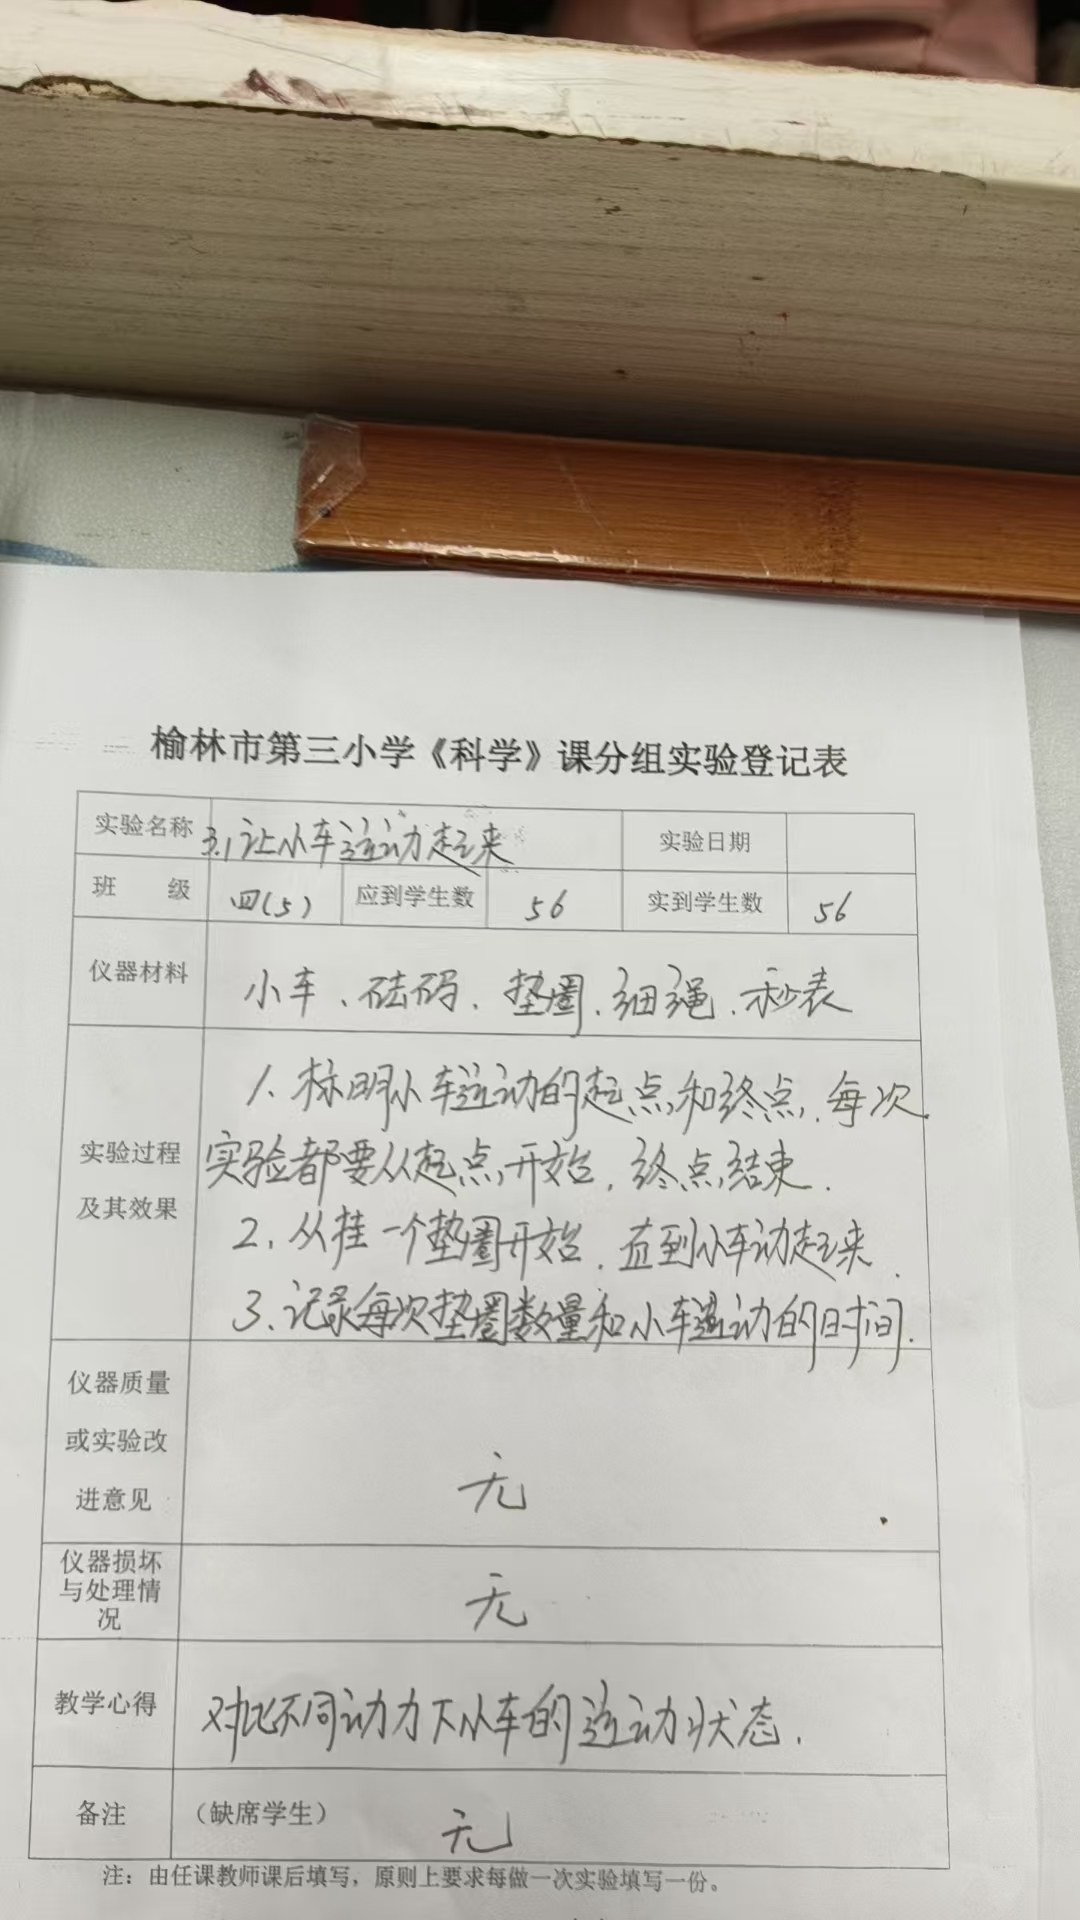 榆林市第三小学《科学》课分组实验登记表
实验名称 3.1让小车运动起来 实验日期
班 级 四(5) 应到学生数 56 实到学生数 56
仪器材料 小车、砝码、垫圈、细绳、秒表
实验过程及其效果
1、标明小车运动的起点和终点,每次
实验都要从起点开始,终点结束.
2、从挂一个垫圈开始,直到小车动起来.
3、记录每次垫圈数量和小车运动的时间.
仪器质量
或实验改
进意见
无
仪器损坏
与处理情
况
无
教学心得 对比不同动力下小车的运动状态.
备注 (缺席学生) 无
注:由任课教师课后填写,原则上要求每做一次实验填写一份。